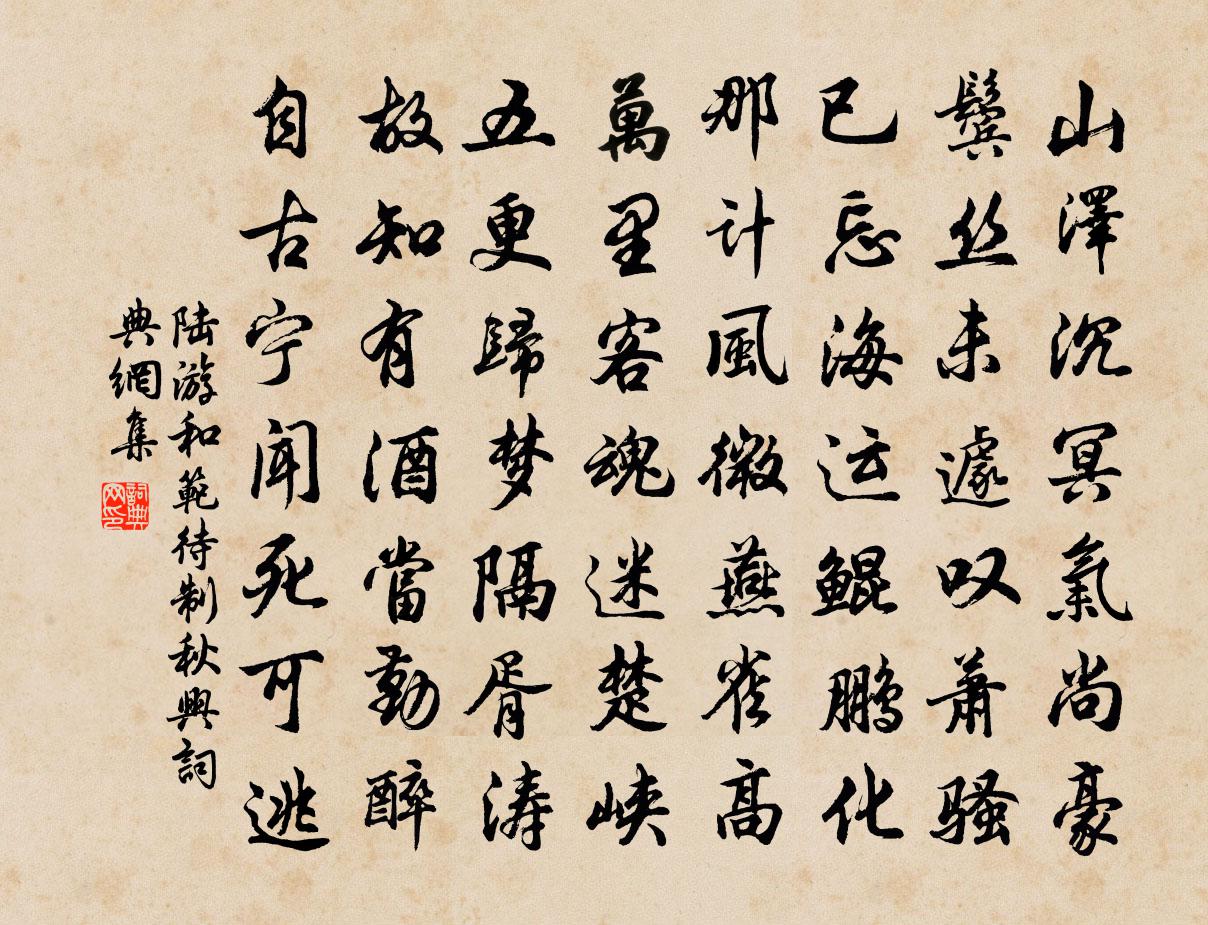 山澤沉冥氣尚豪
鬓丝未遽叹萧骚
已忘海运鲲鹏化
那计風微燕雀高
萬里客魂迷楚峡
五更歸梦隔胥涛
故知有酒當勤醉
自古宁闻死可逃
陆游和範待制秋興詞
典網集
詞典网印